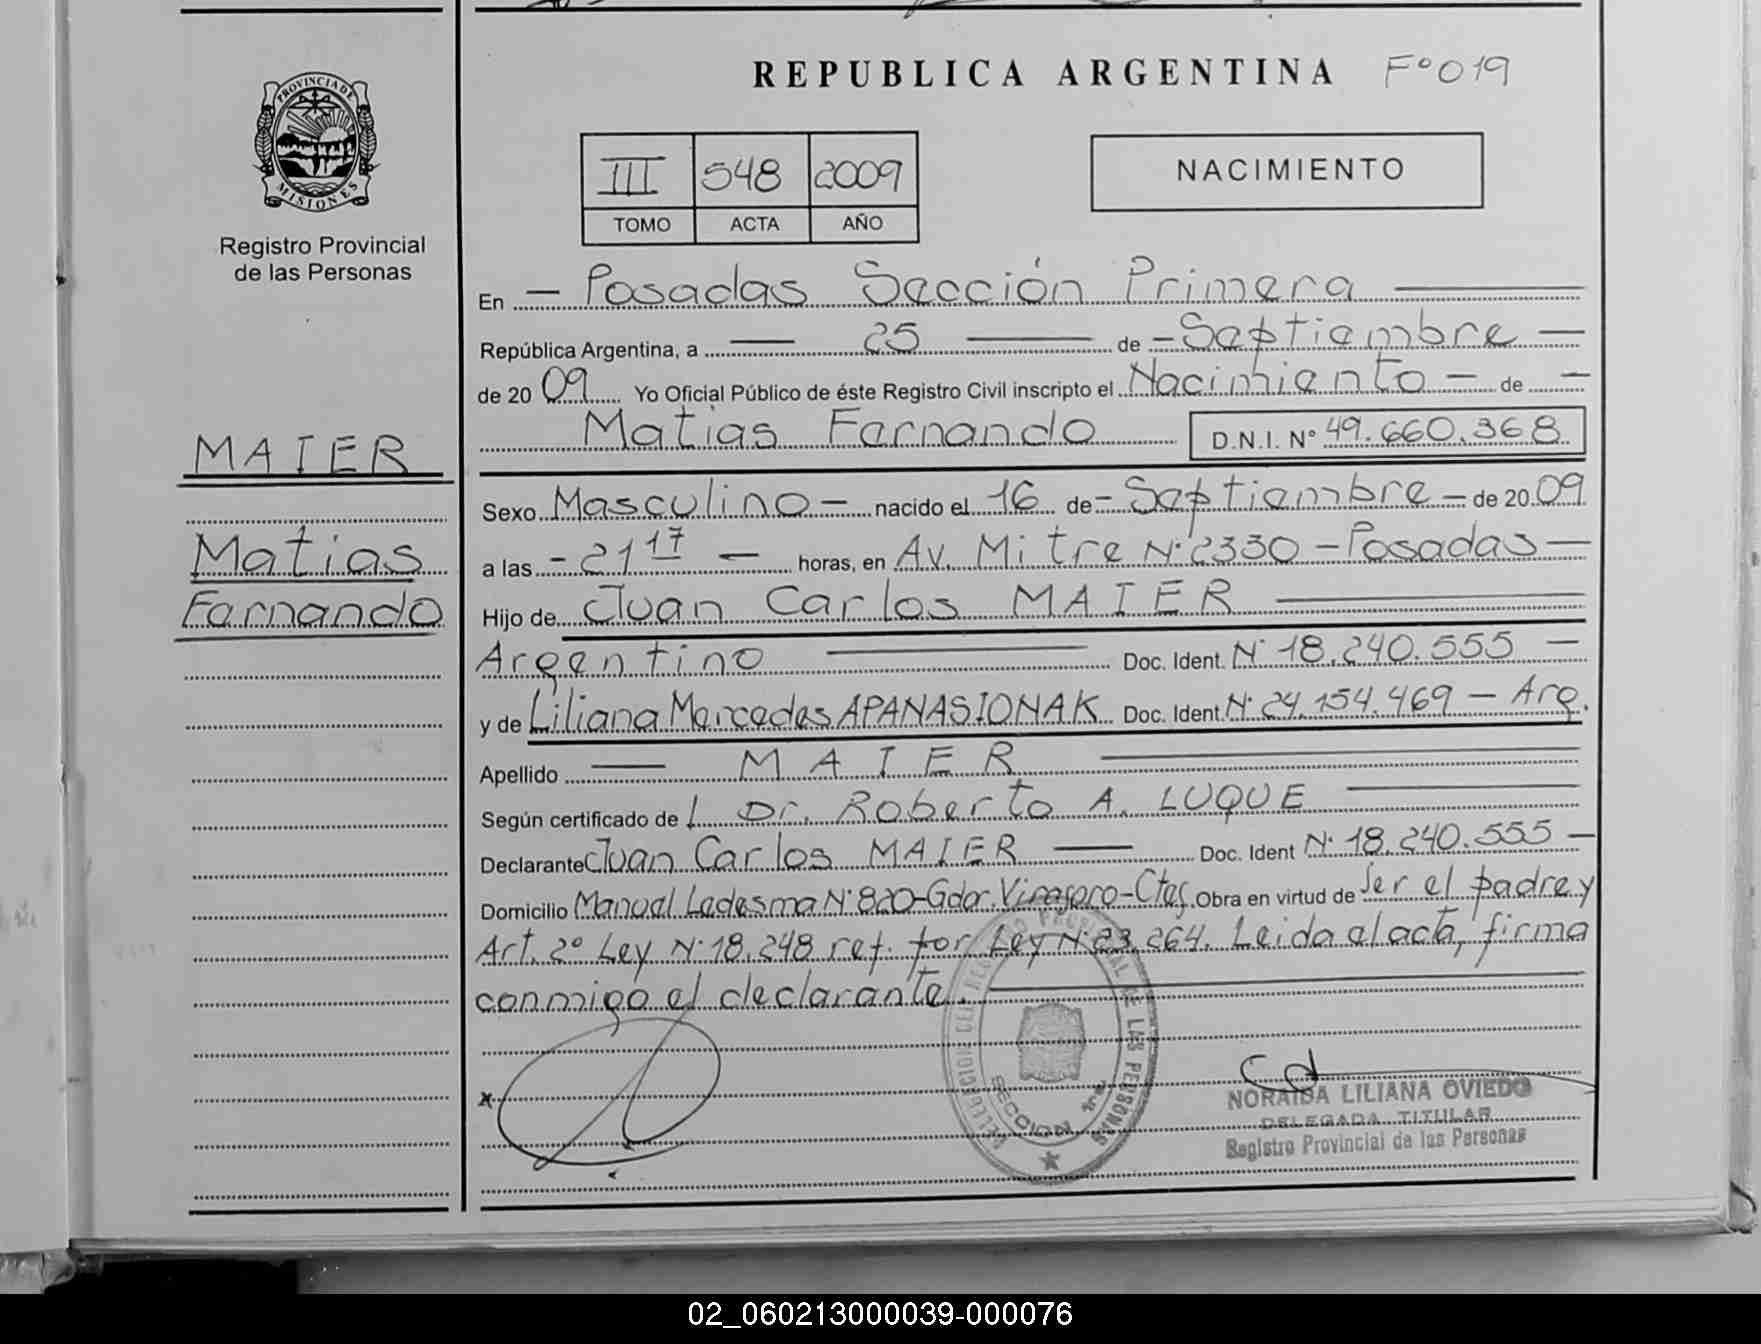 REPUBLICA ARGENTINA Fº 019
PROVINCIA DE
MISIONES
Registro Provincial
de las Personas
III 548 2009
TOMO ACTA AÑO
NACIMIENTO
En — Posadas Sección Primera
República Argentina, a — 25 — de — Septiembre —
de 20 09 Yo Oficial Público de éste Registro Civil inscripto el Nacimiento — de —
Matias Fernando D.N.I. Nº 49.660.368
MAIER
Matias
Fernando
Sexo Masculino — nacido el 16 de — Septiembre — de 20 09
a las — 21 17 — horas, en Av. Mitre Nº 2330 — Posadas —
Hijo de Juan Carlos MAIER
Argentino — Doc. Ident. Nº 18.240.555 —
y de Liliana Mercedes APANASIONAK Doc. Ident. Nº 24.154.469 — Arg.
Apellido — MAIER
Según certificado de l Dr. Roberto A. LUQUE
Declarante Juan Carlos MAIER — Doc. Ident Nº 18.240.555 —
Domicilio Manuel Ledesma Nº 820-Gdor. Virasoro-Ctes. Obra en virtud de ser el padre y
Art. 2º Ley Nº 18.248 ref. por Ley Nº 23.264. Leida el acta, firma
conmigo el declarante.
DELEGACION DEL REGISTRO PROVINCIAL DE LAS PERSONAS
SECCION 1ra
NORAIDA LILIANA OVIEDO
DELEGADA TITULAR
Registro Provincial de las Personas
02_060213000039-000076